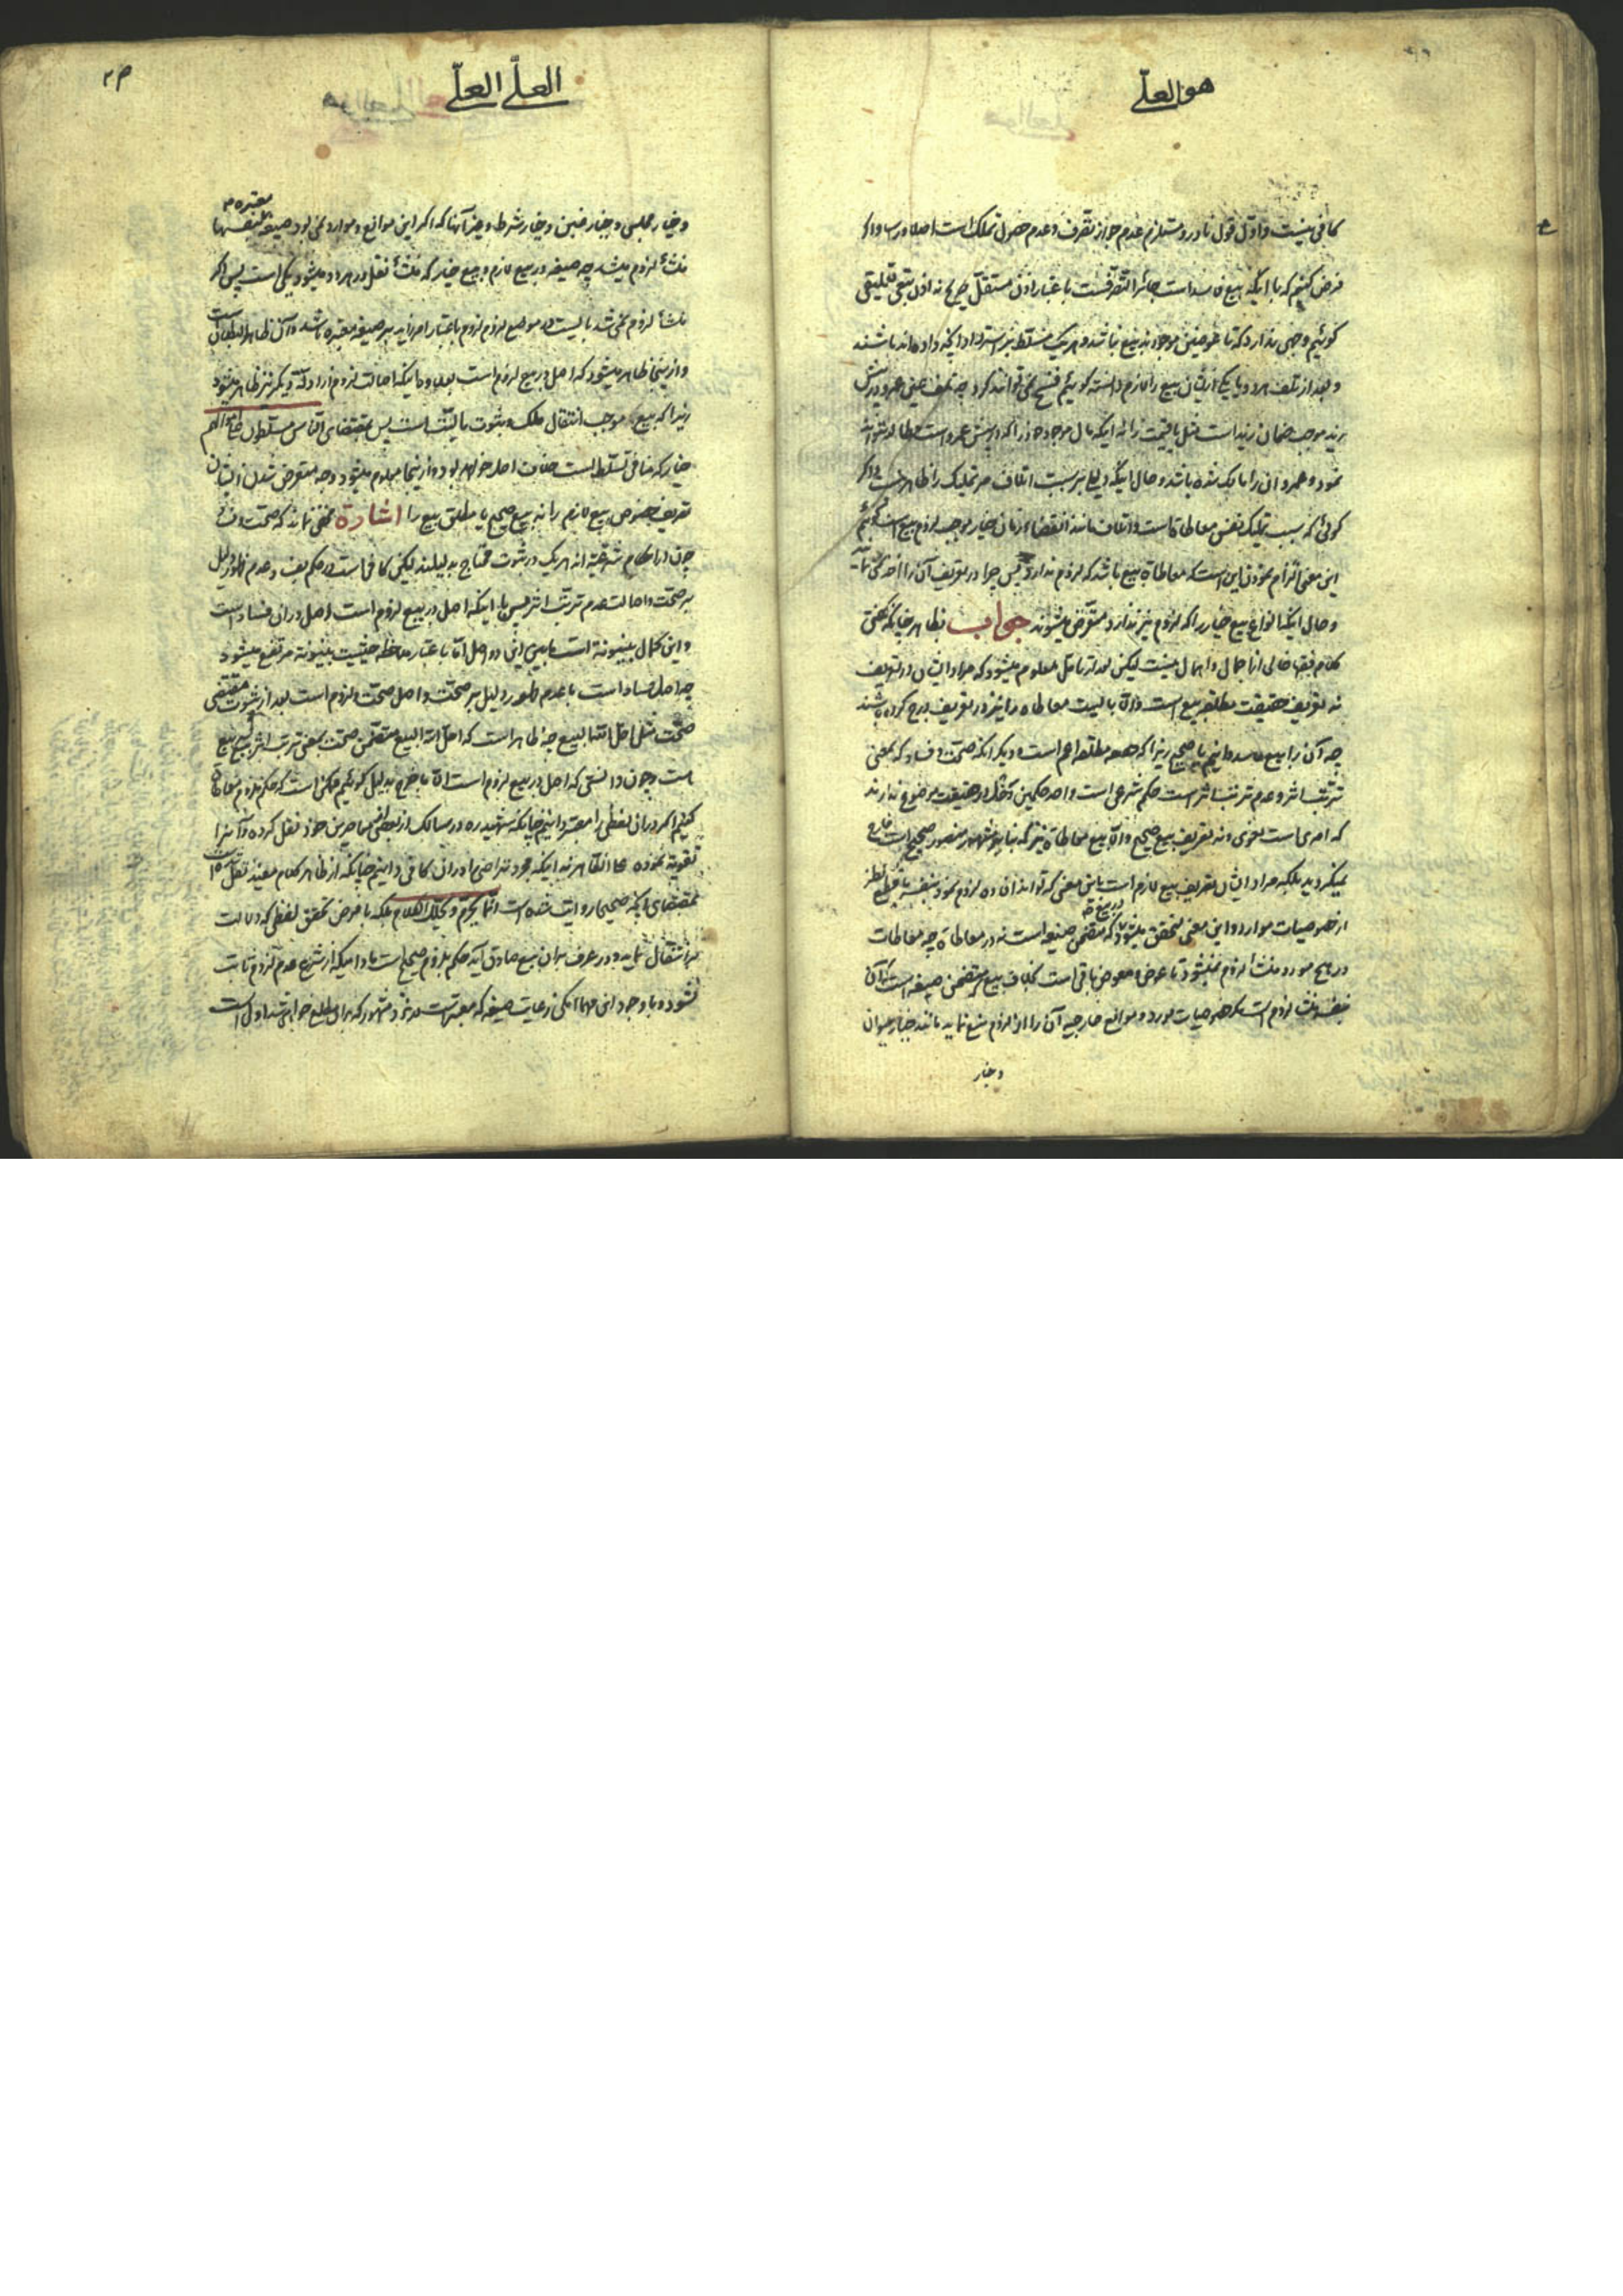 هو العلی
کافی نیست و اول قول نادر و مستلزم عدم جواز تصرف و عدم حصول تملک است اصلا و رسا و اگر
فرض کنیم که با اینکه بیع فاسد است جائز التصرفست باعتبار اذن مستقل صریح نه اذن
گوئیم وجهی ندارد که تا عوضین موجود بیع نباشد و هر یک مسلط بر استرداد آنچه داده‌اند باشند
و بعد از تلف هر دو یا یکی ازیشان بیع را لازم دانسته گوئیم فسخ نمی‌توانند کرد چه تلف عین عمرو در پیش
زید موجب ضمان زید است مثل یا قیمت را نه اینکه مال موجود زر را که در پیش عمرو است مطالبه نتواند
نمود و عمرو آن را مالک شده باشد و حال اینکه دلیلی بر سببیت اتلاف مر تملیک را ظاهر نیست و اگر
گوئی که سبب تملیک نفس معاطاة است و اتلاف مانند انقضاء زمان خیار موجب لزوم بیع است گوئیم
این معنی التزام نمودن این است که معاطاة بیع باشد که لزوم ندارد پس چرا در تعریف آن را اخذ
و حال اینکه انواع بیع خیار را که لزوم نیز ندارد متعرض میشوند جواب بظاهر چنانکه گفتی
کلام فقها خالی از اجمال و اهمال نیست لیکن بعد از تامل معلوم میشود که مراد ایشان در تعریف
نه تعریف حقیقت مطلقه بیع است و الا بایست معاطاة را نیز در تعریف درج کرده باشند
چه آن را بیع فاسد دانیم یا صحیح زیرا که مطلقه اعم است و دیگر آنکه صحت و فساد که بمعنی
ترتب اثر و عدم ترتب اثر است حکم شرعی است و احد حکمین دخل در حقیقت موضوع ندارند
که امری است لغوی و نه تعریف بیع صحیح و الا بیع معاطاة نیز که بنا بر مشهور منصور صحیح است خارج
نمیگردید بلکه مراد ایشان تعریف بیع لازم است باین معنی که تواند افاده لزوم نمود بنفسه با قطع نظر
از خصوصیات موارد و این معنی متحقق میشود در بیع که متضمن صیغه است نه در معاطاة چه معاطات
در هیچ مورد منشأ لزوم نمیشود تا عوض و معوض باقی است بخلاف بیع متضمن صیغه است که آن
بنفسه منشأ لزوم است مگر خصوصیات مورد و موانع خارجیه آن را از لزوم منع نماید مانند خیار حیوان
و خیار
العلی العلی
و خیار مجلس و خیار غبن و خیار شرط و غیر آنها که اگر این موانع و موارد نمی‌بود صیغه معتبره بنفسها
منشأ لزوم میشد چه صیغه در بیع لازم و بیع خیار که منشأ نقل در هر دو میشود یکی است پس اگر
منشأ لزوم نمی‌شد بایست در موضع لزوم لزوم باعتبار امر زاید بر صیغه معتبره باشد و آن ظاهر البطلان است
و ازینجا ظاهر میشود که اصل در بیع لزوم است بعلاوه اینکه اصالت لزوم از ادله دیگر نیز ظاهر میشود
زیرا که بیع موجب انتقال ملک و ثبوت مالیت است پس بمقتضای الناس مسلطون علی اموالهم
خیار که منافی تسلط است خلاف اصل خواهد بود و ازینجا معلوم میشود وجه متعرض شدن ایشان
تعریف خصوص بیع لازم را نه بیع صحیح یا مطلق بیع را اشارة مخفی نماند که صحت و فساد
چون از احکام شرعیه‌اند هر یک در ثبوت محتاج بدلیلند لیکن کافی است در حکم بفساد عدم ظهور دلیل
بر صحت و اصالت عدم ترتب اثر پس با اینکه اصل در بیع لزوم است اصل در آن فساد است
و این کمال بینونة است ما بین این دو اصل اما باعتبار ملاحظه حیثیت بینونة مرتفع میشود
چه اصل فساد است با عدم ظهور دلیل بر صحت و اصل صحت و لزوم است بعد از ثبوت مقتضی
صحت مثل احل الله البیع چه ظاهر است که احل الله البیع متضمن صحت بمعنی ترتب اثر بیع بر بیع
است و چون دانستی که اصل در بیع لزوم است الا ما خرج بدلیل گوئیم ممکن است که حکم بلزوم معاطاة
کنیم اگر در آن لفظی را معتبر دانیم چنانکه شهید ره در مسالک از بعض معاصرین خود نقل کرده و آنرا
تقویة نموده علی الظاهر نه اینکه مجرد تراضی را در آن کافی دانیم چنانکه از ظاهر کلام مفید نقل شده است
بمقتضای اینکه صحیحا روایت شده است انما یحرم و یحلل الکلام بلکه با فرض تحقق لفظی که دلالت
بر انتقال نماید و در عرف بر آن بیع صادق آید حکم بلزوم صحیح است مادامیکه از شرع عدم لزوم ثابت
نشود و با وجود این مهما امکن رعایت صیغه که معتبر است در نزد مشهور که برای مطلع خواهی شد اولی است